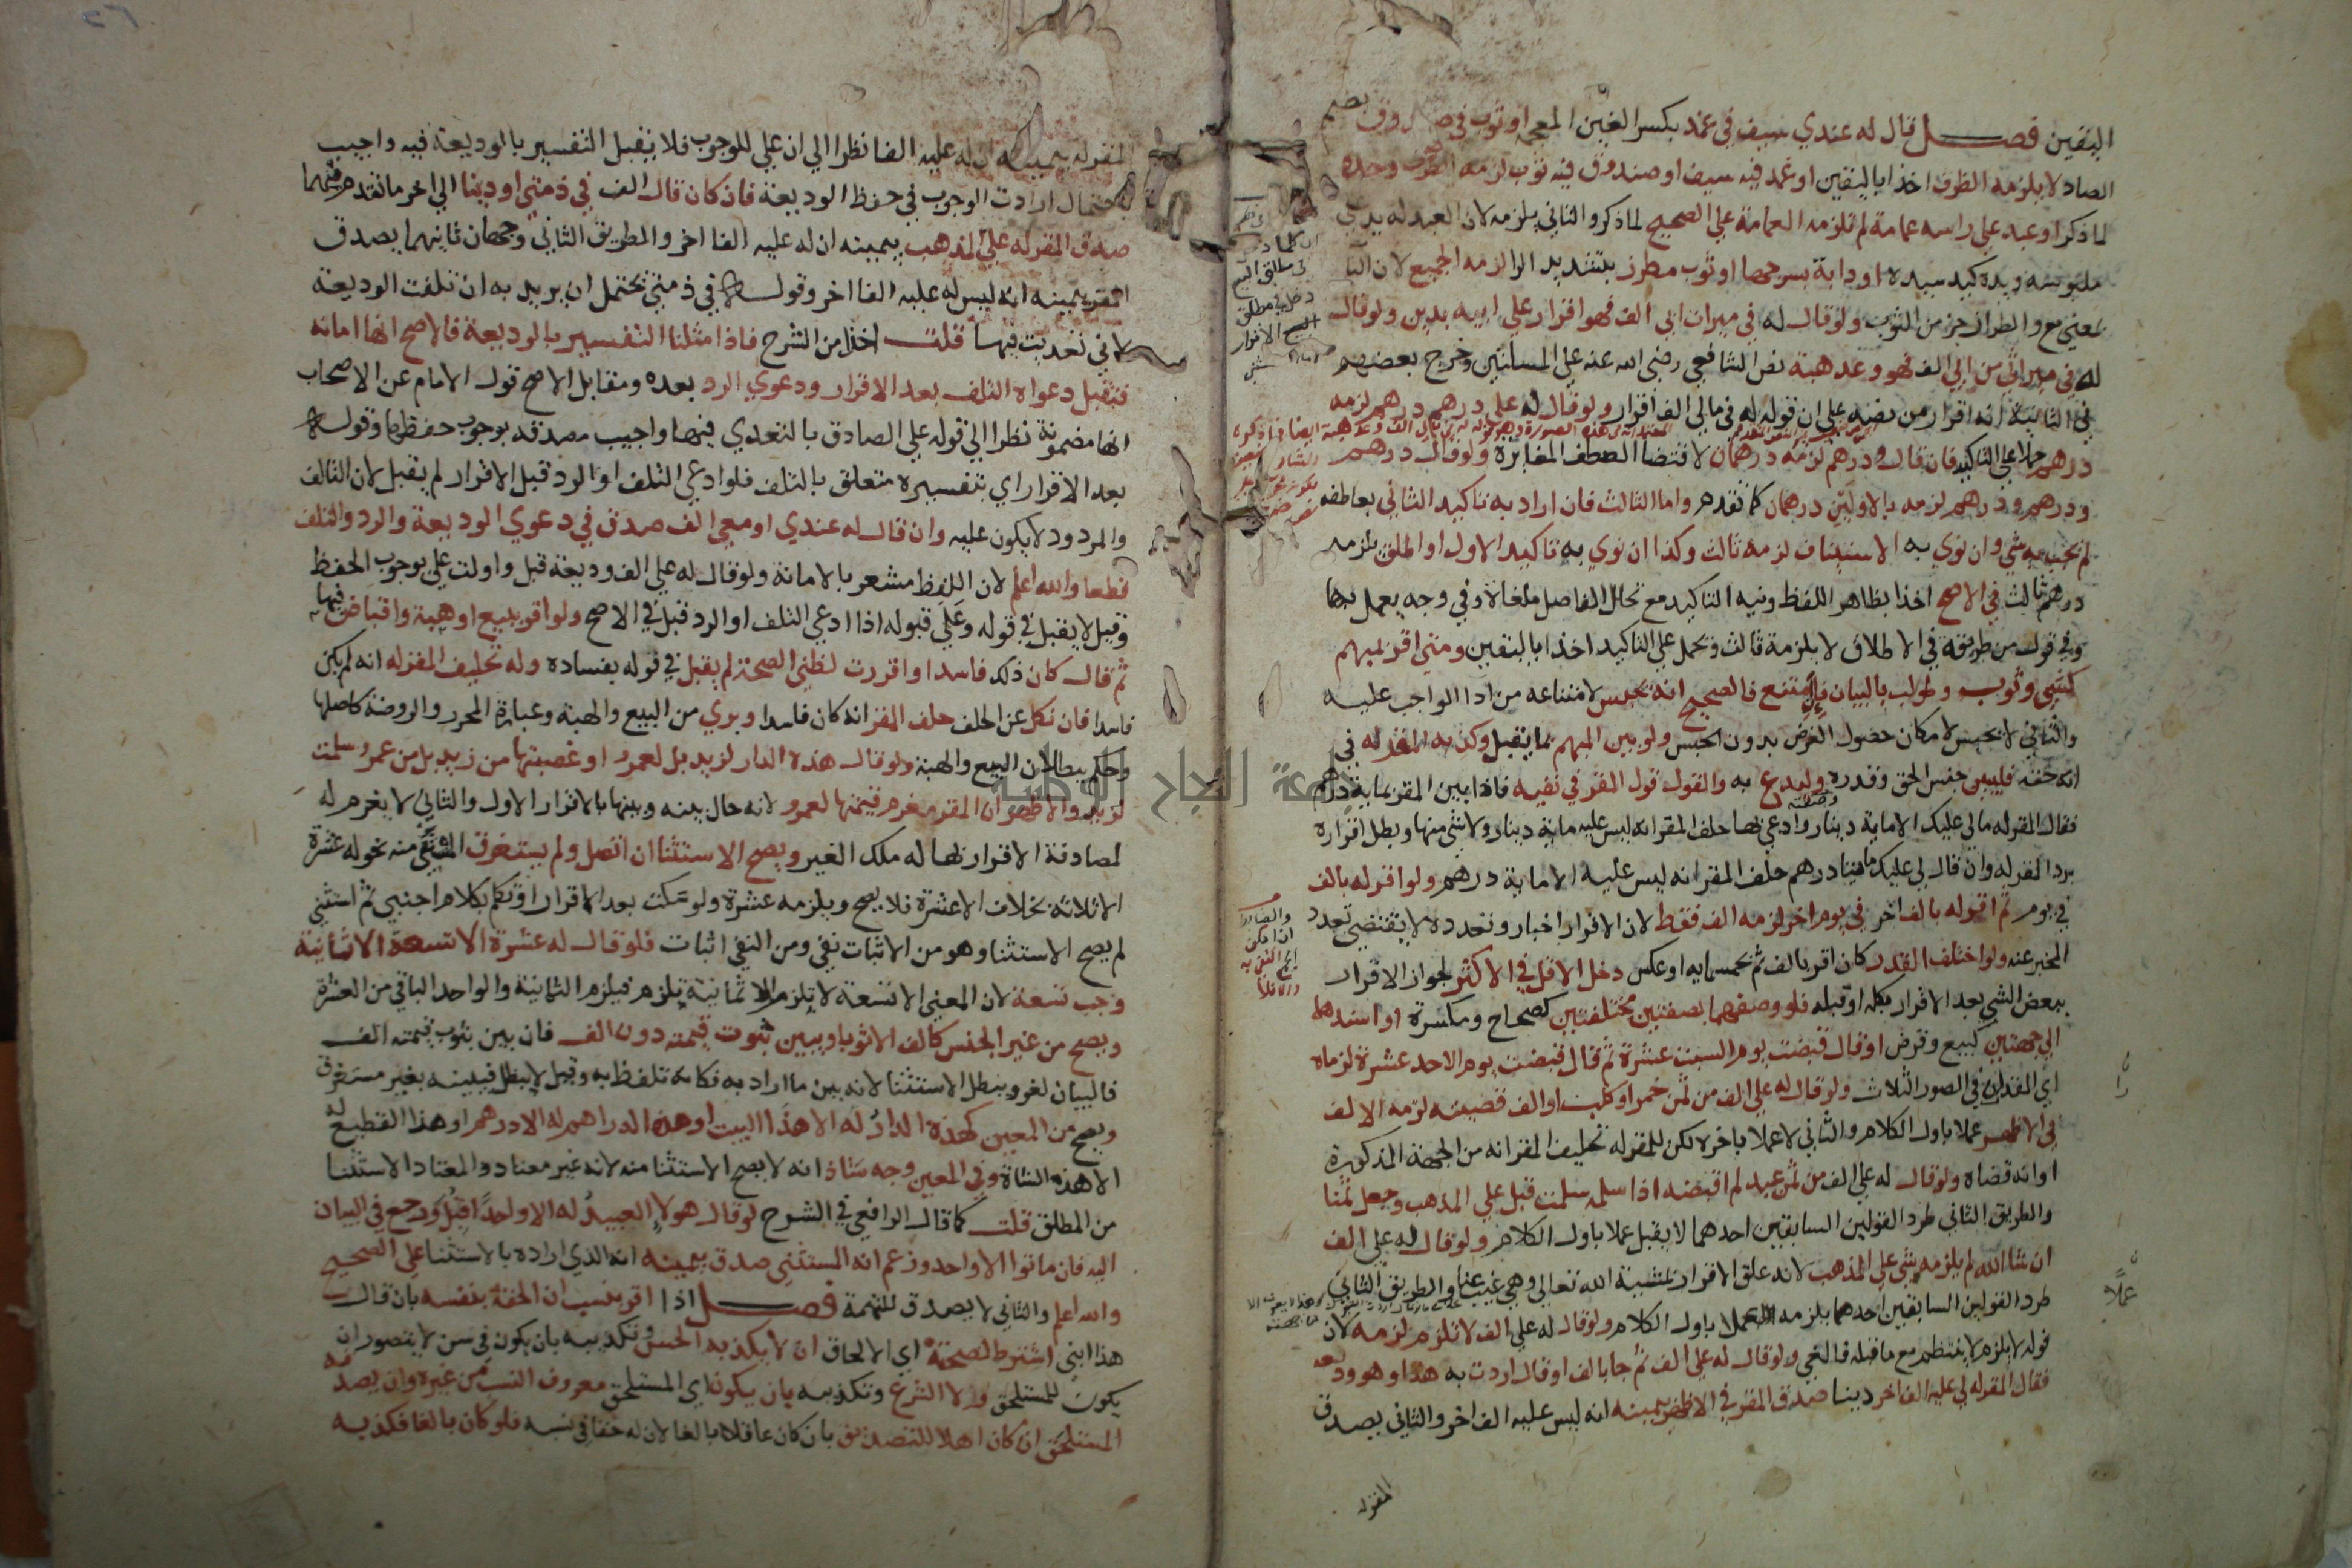 اليقين فصل قال له عندي سيف في غمد بكسر الغين المعجمة او ثوب في صندوق بضم
الصاد لا يلزمه الظرف اخذا باليقين او غمد فيه سيف او صندوق فيه ثوب لزمه الظرف وحده
لما ذكر او عبد علي راسه عمامة لم تلزمه العمامة علي الصحيح لما ذكر والثاني يلزمه لان العبد له يد علي
ملبوسه ويده كيد سيده او دابة بسرجها او ثوب مطرز بتشديد الرا لزمه الجميع لان البا
بمعني مع والطراز جز من الثوب ولو قال له في ميراث ابي الف فهو اقرار علي ابيه بدين ولو قال
له في ميراثي من ابي الف فهو وعد هبة نص الشافعي رضي الله عنه علي المسالتين وخرج بعضهم
في الثانية انه اقرار من نصه علي ان قوله له في مالي الف اقرار ولو قال له علي درهم درهم لزمه
درهم حملا علي التاكيد فان قال ودرهم لزمه درهمان لاقتضا العطف المغايرة ولو قال درهم
ودرهم ودرهم لزمه بالاولين درهمان كما تقدم واما الثالث فان اراد به تاكيد الثاني بعاطفه
لم يجب به شي وان نوي به الاستيناف لزمه ثالث وكذا ان نوي به تاكيد الاول او اطلق يلزمه
درهم ثالث في الاصح اخذا بظاهر اللفظ ونية التاكيد مع تخلل الفاصل ملغاة وفي وجه يعمل بها
وفي قول من طريقة في الاطلاق لا يلزمه ثالث ويحمل علي التاكيد اخذا باليقين ومتي اقر بمبهم
كشي وثوب وطولب بالبيان فامتنع فالصحيح انه يحبس لامتناعه من ادا الواجب عليه
والثاني لا يحبس لامكان حصول الغرض بدون الحبس ولو بين المبهم بما يقبل وكذبه المقر له في
انه حقه فليبين جنس الحق وقدره وصفته وليدع به والقول قول المقر في نفيه فاذا بين المقر بماية درهم
فقال المقر له مالي عليك الا ماية دينار وادعي بها حلف المقر انه ليس عليه ماية دينار ولا شي منها وبطل اقراره
برد المقر له وان قال لي عليك مايتا درهم حلف المقر انه ليس عليه الا ماية درهم ولو اقر له بالف
في يوم ثم اقر له بالف اخر في يوم اخر لزمه الف فقط لان الاقرار اخبار وتعدده لا يقتضي تعدد
المخبر عنه ولو اختلف القدر كان اقر بالف ثم بخمسمايه او عكس دخل الاقل في الاكثر لجواز الاقرار
ببعض الشي بعد الاقرار بكله او قبله فلو وصفهما بصفتين مختلفتين كصحاح ومكسرة او اسندهما
الي جهتين كبيع وقرض او قال قبضت يوم السبت عشرة ثم قال قبضت يوم الاحد عشرة لزماه
اي القدران في الصور الثلاث ولو قال له علي الف من ثمن خمر او كلب او الف قضيته لزمه الالف
في الاظهر عملا باول الكلام والثاني لا عملا باخره لكن للمقر له تحليف المقر انه من الجهة المذكورة
او انه قضاه ولو قال له علي الف من ثمن عبد لم اقبضه اذا سلمه سلمت قبل علي المذهب وجعل ثمنا
والطريق الثاني طرد القولين السابقين احدهما لا يقبل عملا باول الكلام ولو قال له علي الف
ان شا الله لم يلزمه شي علي المذهب لانه علق الاقرار بمشية الله تعالي وهي غيب عنا والطريق الثاني
طرد القولين السابقين احدهما يلزمه عملا باول الكلام ولو قال له علي الف لا تلزم لزمه لان
قوله لا يلزم لا ينتظم مع ما قبله فالغي ولو قال له علي الف ثم جا بالف وقال اردت به هذا وهو وديعه
فقال المقر له لي عليه الف اخر دينا صدق المقر في الاظهر بيمينه انه ليس عليه الف اخر والثاني يصدق
المقر له
المقر له بيمينه ان له عليه الفا نظرا الي ان علي للوجوب فلا يقبل التفسير بالوديعة فيه واجيب
باحتمال ارادت الوجوب في حفظ الوديعة فان كان قال الف في ذمتي او دينا الي اخر ما تقدم فيهما
صدق المقر له علي المذهب بيمينه ان له عليه الفا اخر والطريق الثاني وجهان ثانيهما يصدق
المقر بيمينه انه ليس له عليه الفا اخر وقوله في ذمتي يحتمل ان يريد به ان تلفت الوديعة
لاني تعديت فيها قلت اخذا من الشرح فاذا مثلنا التفسير بالوديعة فالاصح انها امانه
فتقبل دعواه التلف بعد الاقرار ودعوي الرد بعده ومقابل الاصح قول الامام عن الاصحاب
انها مضمونة نظرا الي قوله علي الصادق بالتعدي فيها واجيب بصدقه بوجوب حفظها وقوله
بعد الاقرار اي بتفسيره متعلق بالتلف فلو ادعي التلف او الرد قبل الاقرار لم يقبل لان التالف
والمردود لا يكون عليه وان قال له عندي او معي الف صدق في دعوي الوديعة والرد والتلف
قطعا والله اعلم لان اللفظ مشعر بالامانة ولو قال له علي الف وديعة قبل واولت علي بوجوب الحفظ
وقيل لا يقبل في قوله وعلي قبوله اذا ادعي التلف او الرد قبل في الاصح ولو اقر ببيع او هبة واقباض فيها
ثم قال كان ذلك فاسدا واقررت لظني الصحة لم يقبل في قوله بفساده وله تحليف المقر له انه لم يكن
فاسدا فان نكل عن الحلف حلف المقر انه كان فاسدا وبري من البيع والهبة وعبارة المحرر والروضة كاصلها
وحكم ببطلان البيع والهبة ولو قال هذه الدار لزيد بل لعمرو او غصبتها من زيد بل من عمرو سلمت
لزيد والاظهر ان المقر يغرم قيمتها لعمرو لانه حال بينه وبينها بالاقرار الاول والثاني لا يغرم له
لمصادفة الاقرار بها له ملك الغير ويصح الاستثنا ان اتصل ولم يستغرق المستثني منه نحو له عشرة
الا ثلاثة بخلاف الا عشرة فلا يصح ويلزمه عشرة ولو سكت بعد الاقرار او تكلم بكلام اجنبي ثم استثني
لم يصح الاستثنا وهو من الاثبات نفي ومن النفي اثبات فلو قال له عشرة الا تسعة الا ثمانية
وجب تسعة لان المعني الا تسعة لا تلزم الا ثمانية تلزم فيلزم الثمانية والواحد الباقي من العشرة
ويصح من غير الجنس كالف الا ثوبا ويبين بثوب قيمته دون الف فان بين بثوب قيمته الف
فالبيان لغو ويبطل الاستثنا لانه بين ما اراد به فكانه تلفظ به وقيل لا يبطل فيبينه بغير مستغرق
ويصح من المعين كهذه الدار له الا هذا البيت او هذه الدراهم له الا درهم او هذا القطيع له
الا هذه الشاة وفي المعين وجه شاذ انه لا يصح الاستثنا منه لانه غير معتاد والمعتاد الاستثنا
من المطلق قلت كما قال الرافعي في الشرح لو قال هولا العبيد له الا واحدا قبل ورجع في البيان
اليه فان ماتوا الا واحد وزعم انه المستثني صدق بيمينه انه الذي اراده بالاستثنا علي الصحيح
والله اعلم والثاني لا يصدق للتهمة فصل اذا اقر بنسب ان الحقه بنفسه بان قال
هذا ابني اشترط لصحته اي الالحاق ان لا يكذبه الحس وتكذيبه بان يكون في سن لا يتصور ان
يكون للمستلحق ولا الشرع وتكذيبه بان يكون اي المستلحق معروف النسب من غيره وان يصدقه
المستلحق ان كان اهلا للتصديق بان كان عاقلا بالغا لان له حقا في نسبه فلو كان بالغا فكذبه